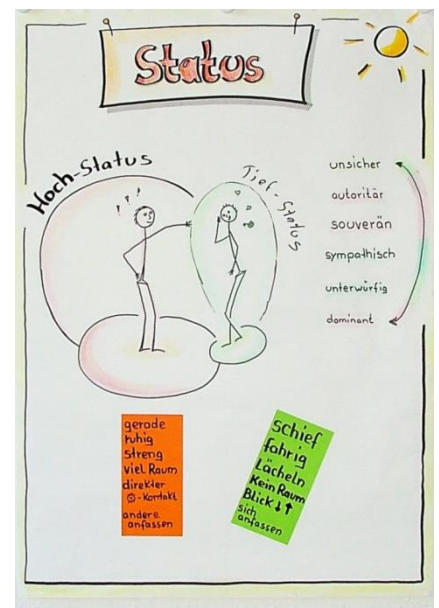 Status
Hoch-Status
Tief-Status
! ! !
unsicher
autoritär
souverän
sympathisch
unterwürfig
dominant
gerade
ruhig
streng
viel Raum
direkter
-Kontakt
andere
anfassen
schief
fahrig
Lächeln
Kein Raum
Blick ↓↑
sich
anfassen